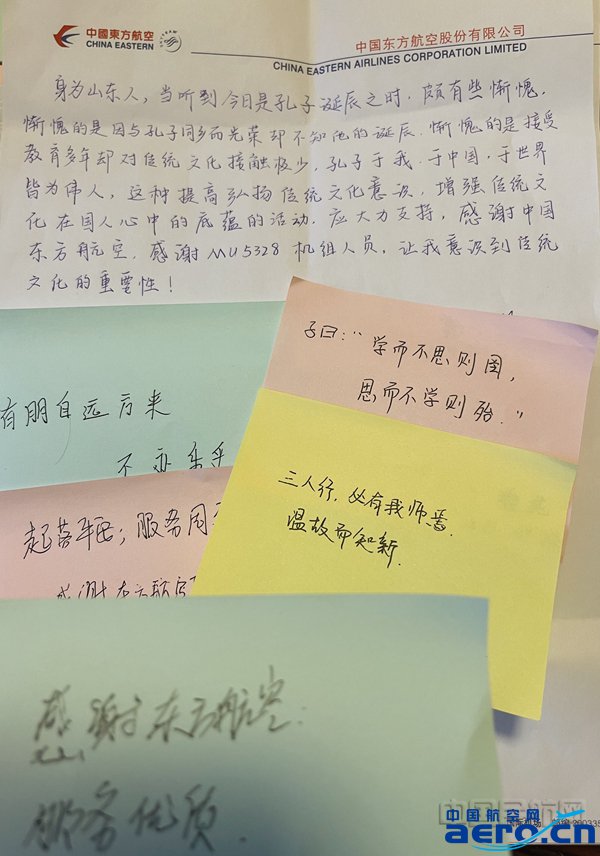 中國東方航空
CHINA EASTERN
中国东方航空股份有限公司
CHINA EASTERN AIRLINES CORPORATION LIMITED
身为山东人，当听到今日是孔子诞辰之时，颇有些惭愧，
惭愧的是因与孔子同乡而光荣却不知他的诞辰．惭愧的是接受
教育多年却对传统文化接触极少．孔子于我．于中国．于世界
皆为伟人，这种提高弘扬传统文化意识，增强传统文
化在国人心中的底蕴的活动．应大力支持，感谢中国
东方航空．感谢MU5328机组人员．让我意识到传统
文化的重要性！
子曰：“学而不思则罔，
思而不学则殆．”
有朋自远方来
不亦乐乎
三人行，必有我师焉．
温故而知新．
起落平稳；服务周
感谢东方航空
感谢东方航空：
服务优质．
中国航空网
aero.cn